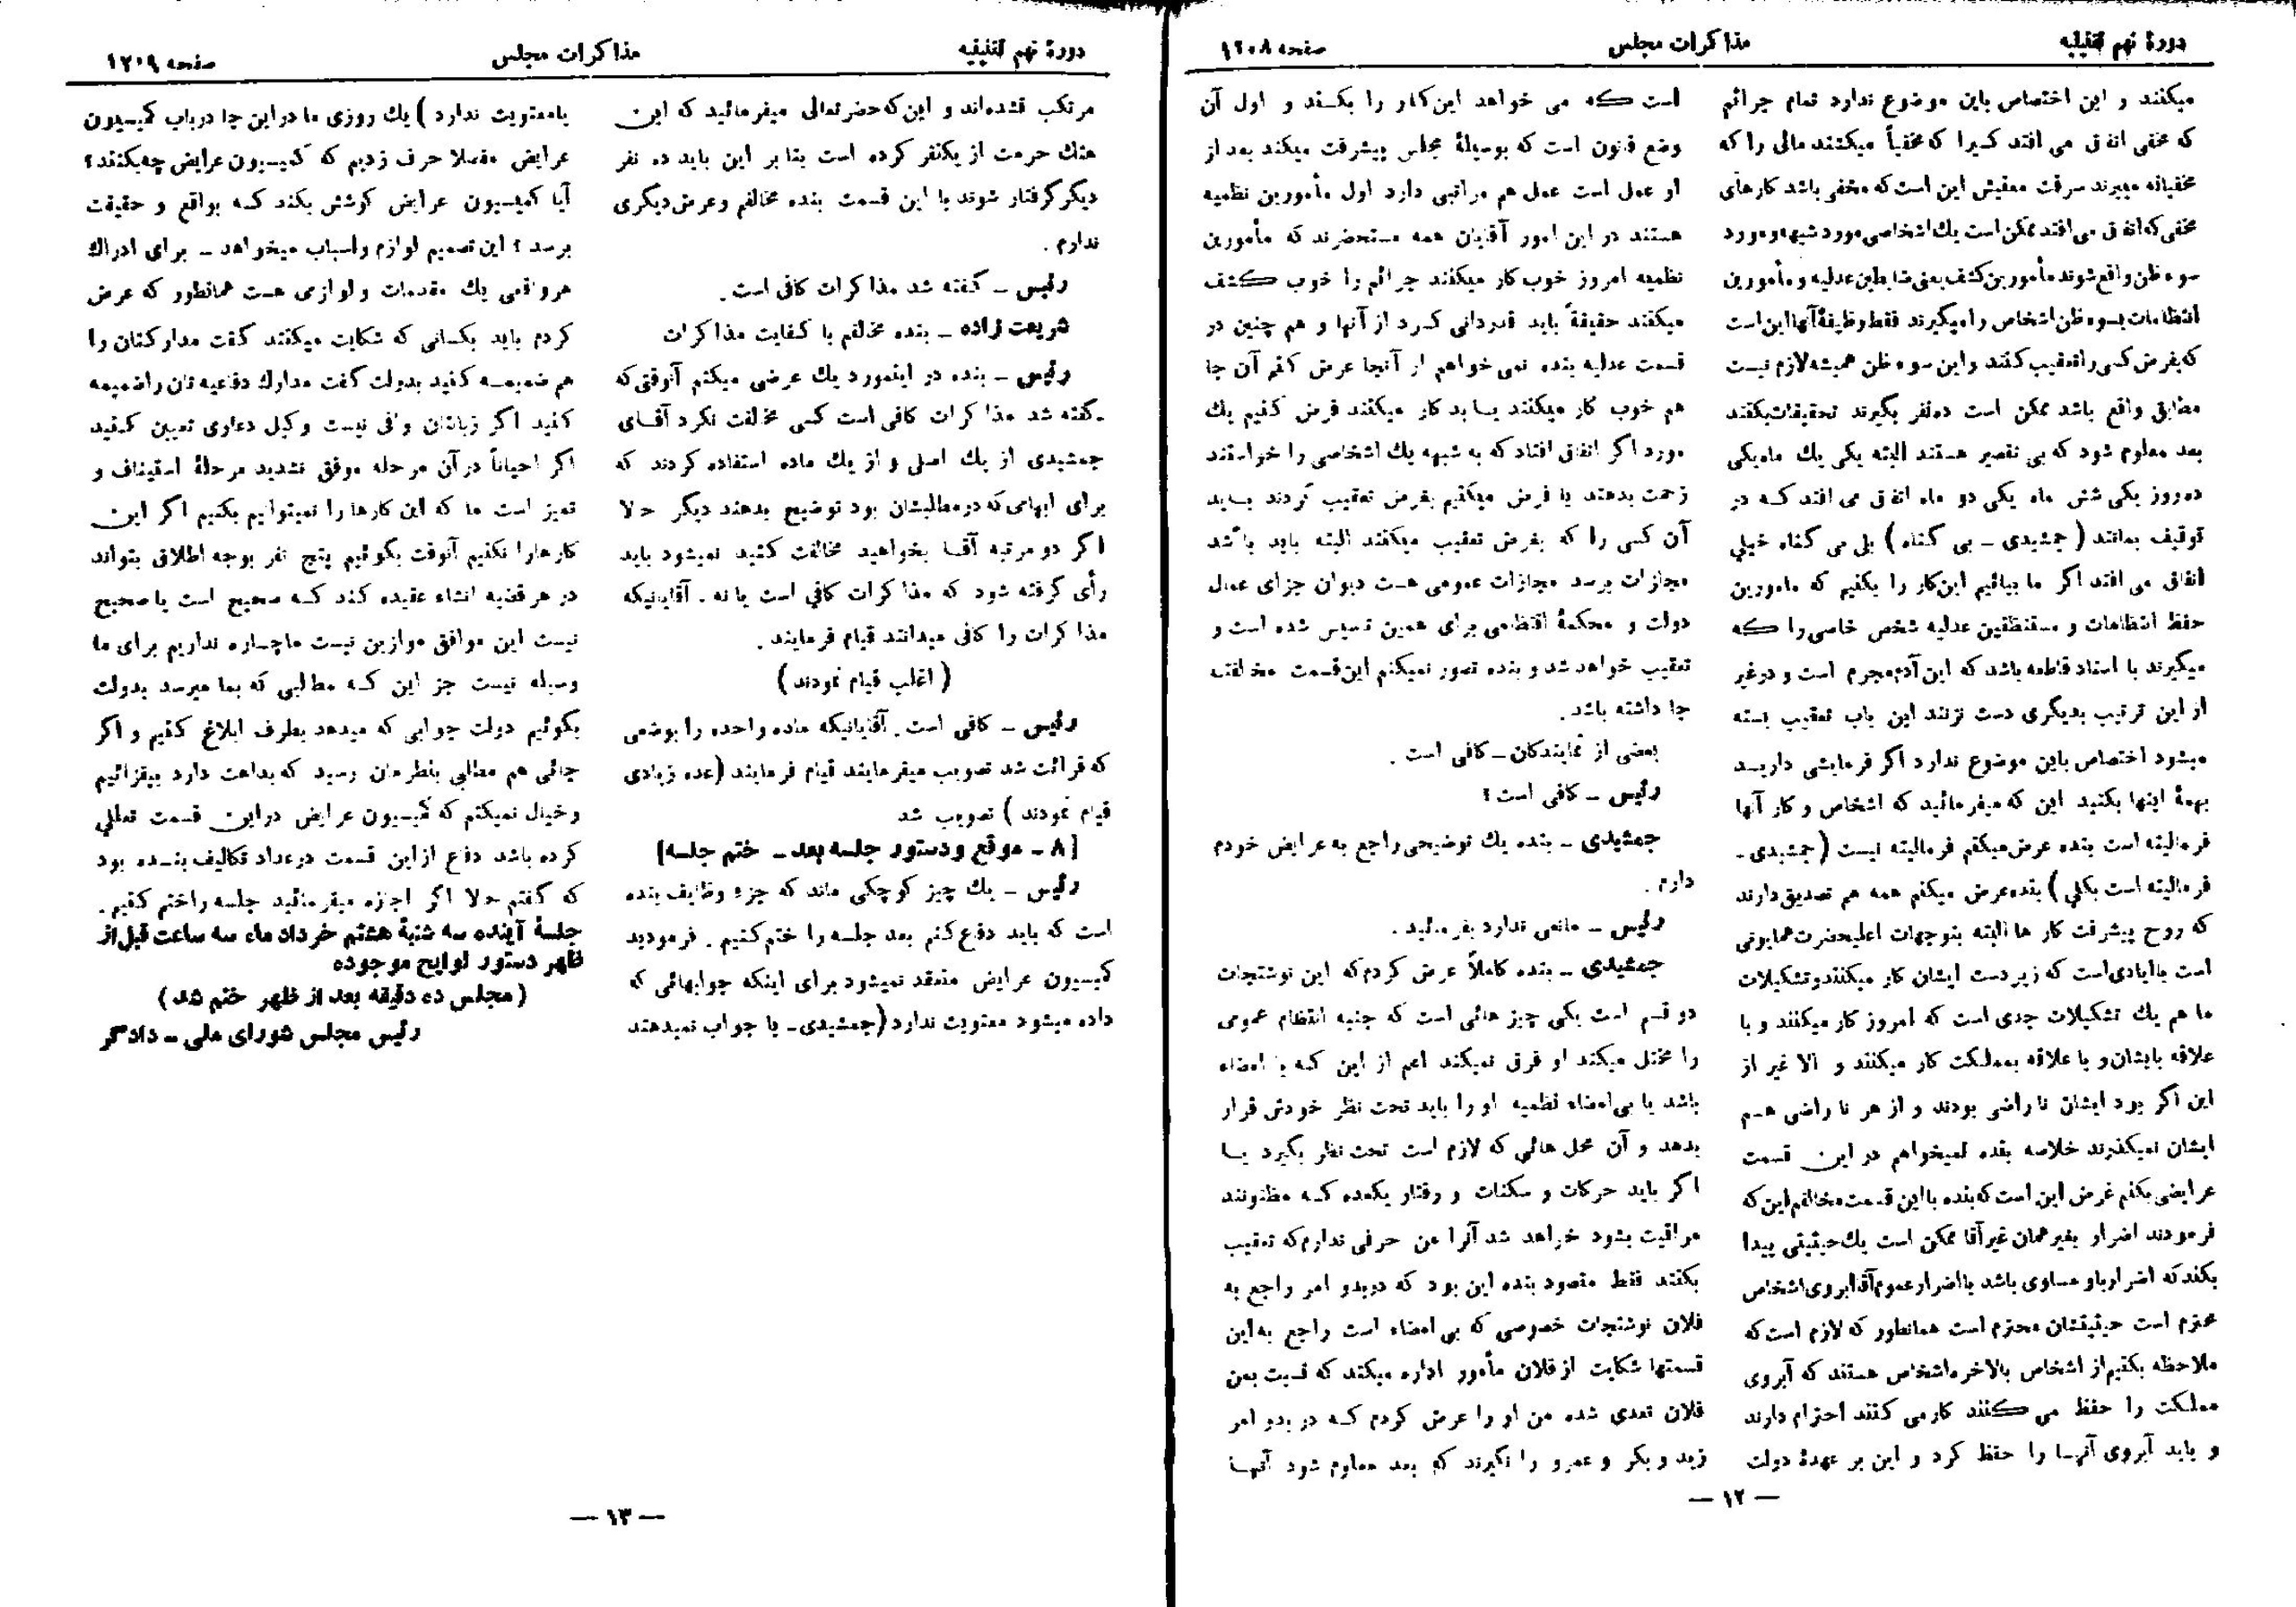 دورهٔ نهم تقنینیه
مذاکرات مجلس
صفحه ۱۲۰۸
میکنند و این اختصاص باین موضوع ندارد تمام جرائم
که مخفی اتفاق می افتد کسیرا که مخفیاً میکشند مالی را که
مخفیانه میبرند سرقت معنیش این است که مخفی باشد کارهای
مخفی که اتفاق می افتد ممکن است یك اشخاصی مورد شبهه و مورد
سوءظن واقع شوند مأمورین کشف یعنی ضابطین عدلیه و مأمورین
انتظامات بسوءظن اشخاص را میگیرند فقط وظیفهٔ آنها این است
که بفرض کسی را تعقیب کنند و این سوءظن همیشه لازم نیست
مطابق واقع باشد ممکن است ده نفر بگیرند تحقیقات بکنند
بعد معلوم شود که بی تقصیر هستند البته یکی یك ماه یکی
ده روز یکی شش ماه یکی دو ماه اتفاق می افتد که در
توقیف بمانند ( جمشیدی ـ بی گناه ) بلی بی گناه خیلی
اتفاق می افتد اگر ما بیائیم این کار را بکنیم که مامورین
حفظ انتظامات و مستنطقین عدلیه شخص خاصی را که
میگیرند با اسناد قاطعه باشد که این آدم مجرم است و در غیر
از این ترتیب بدیگری دست نزنند این باب تعقیب بسته
میشود اختصاص باین موضوع ندارد اگر فرمایشی دارید
بهمهٔ اینها بکنید این که میفرمائید که اشخاص و کار آنها
فرمالیته است بنده عرض میکنم فرمالیته نیست ( جمشیدی ـ
فرمالیته است بکلی ) بنده عرض میکنم همه هم تصدیق دارند
که روح پیشرفت کار ها البته بتوجهات اعلیحضرت همایونی
است با ایادی است که زیر دست ایشان کار میکنند و تشکیلات
ما هم یك تشکیلات جدی است که امروز کار میکنند و با
علاقه بایشان و با علاقه بمملکت کار میکنند و الا غیر از
این اگر بود ایشان نا راضی بودند و از هر نا راضی هم
ایشان نمیگذرند خلاصه بنده نمیخواهم در این قسمت
عرایضی بکنم غرض این است که بنده با این قسمت مخالفم این که
فرمودند اضرار بغیر همان غیر آقا ممکن است یك حیثیتی پیدا
بکند که اضرار باو مساوی باشد با اضرار عموم آقا آبروی اشخاص
محترم است حیثیتشان محترم است همانطور که لازم است که
ملاحظه بکنیم از اشخاص بالاخره اشخاص هستند که آبروی
مملکت را حفظ می کنند کار می کنند احترام دارند
و باید آبروی آنها را حفظ کرد و این بر عهدهٔ دولت
است که می خواهد این کار را بکند و اول آن
وضع قانون است که بوسیلهٔ مجلس پیشرفت میکند بعد از
او عمل است عمل هم مراتبی دارد اول مأمورین نظمیه
هستند در این امور آقایان همه مستحضرند که مأمورین
نظمیه امروز خوب کار میکنند جرائم را خوب کشف
میکنند حقیقةً باید قدردانی کرد از آنها و هم چنین در
قسمت عدلیه بنده نمی خواهم از آنجا عرض کنم آن جا
هم خوب کار میکنند یا بد کار میکنند فرض کنیم یك
مورد اگر اتفاق افتاد که به شبهه یك اشخاصی را خواستند
زحمت بدهند یا فرض میکنیم بغرض تعقیب کردند باید
آن کسی را که بغرض تعقیب میکنند البته باید باشد
مجازات برسد مجازات عمومی هست دیوان جزای عمال
دولت و محکمهٔ انتظامی برای همین تاسیس شده است و
تعقیب خواهد شد و بنده تصور نمیکنم این قسمت مخالفت
جا داشته باشد .
بعضی از نمایندگان ـ کافی است .
رئیس ـ کافی است ؟
جمشیدی ـ بنده یك توضیحی راجع به عرایض خودم
دارم .
رئیس ـ مانعی ندارد بفرمائید .
جمشیدی ـ بنده کاملاً عرض کردم که این نوشتجات
دو قسم است یکی چیز هائی است که جنبه انتظام عمومی
را مختل میکند او فرق نمیکند اعم از این که با امضاء
باشد یا بی امضاء نظمیه او را باید تحت نظر خودش قرار
بدهد و آن محل هائی که لازم است تحت نظر بگیرد یا
اگر باید حرکات و سکنات و رفتار یکعده که مظنونند
مراقبت بشود خواهد شد آنرا من حرفی ندارم که تعقیب
بکنند فقط مقصود بنده این بود که در بدو امر راجع به
فلان نوشتجات خصوصی که بی امضاء است راجع به این
قسمتها شکایت از فلان مأمور اداره میکند که نسبت بمن
فلان تعدی شده من او را عرض کردم که در بدو امر
زید و بکر و عمرو را نگیرند که بعد معلوم شود آنها
— ۱۲ —
دورهٔ نهم تقنینیه
مذاکرات مجلس
صفحه ۱۲۰۹
مرتکب نشده‌اند و این که حضرتعالی میفرمائید که این
هتك حرمت از یکنفر کرده است بنا بر این باید ده نفر
دیگر گرفتار شوند با این قسمت بنده مخالفم و عرض دیگری
ندارم .
رئیس ـ گفته شد مذاکرات کافی است .
شریعت زاده ـ بنده مخالفم با کفایت مذاکرات
رئیس ـ بنده در اینمورد یك عرضی میکنم آنوقتی که
گفته شد مذاکرات کافی است کسی مخالفت نکرد آقای
جمشیدی از یك اصلی و از یك ماده استفاده کردند که
برای ابهامی که در مطالبشان بود توضیح بدهند دیگر حالا
اگر دو مرتبه آقا بخواهید مخالفت کنید نمیشود باید
رأی گرفته شود که مذاکرات کافی است یا نه . آقایانیکه
مذاکرات را کافی میدانند قیام فرمایند .
( اغلب قیام نمودند )
رئیس ـ کافی است . آقایانیکه ماده واحده را بوضعی
که قرائت شد تصویب میفرمایند قیام فرمایند (عده زیادی
قیام نمودند ) تصویب شد
[ ۸ ـ موقع و دستور جلسه بعد ـ ختم جلسه ]
رئیس ـ یك چیز کوچکی ماند که جزء وظایف بنده
است که باید دفاع کنم بعد جلسه را ختم کنیم . فرمودید
کمیسیون عرایض منعقد نمیشود برای اینکه جوابهائی که
داده میشود معنویت ندارد (جمشیدی ـ یا جواب نمیدهند
یا معنویت ندارد ) یك روزی ما در این جا در باب کمیسیون
عرایض مفصلا حرف زدیم که کمیسیون عرایض چه بکنند ؟
آیا کمیسیون عرایض کوشش بکند که بواقع و حقیقت
برسد ؟ این تصمیم لوازم و اسباب میخواهد ـ برای ادراك
هر واقعی یك مقدمات و لوازمی هست همانطور که عرض
کردم باید بکسانی که شکایت میکنند گفت مدارکتان را
هم ضمیمه کنید بدولت گفت مدارك دفاعیه تان را ضمیمه
کنید اگر زبانتان وافی نیست وکیل دعاوی تعیین کنید
اگر احیاناً در آن مرحله موفق نشدید مرحلهٔ استیناف و
تمیز است ما که این کارها را نمیتوانیم بکنیم اگر این
کارهارا نکنیم آنوقت بگوئیم پنج نفر بوجه اطلاق بتواند
در هر قضیه انشاء عقیده کند که صحیح است یا صحیح
نیست این موافق موازین نیست ما چاره نداریم برای ما
وسیله نیست جز این که مطالبی که بما میرسد بدولت
بگوئیم دولت جوابی که میدهد بطرف ابلاغ کنیم و اگر
جائی هم مطالبی بنظرمان رسید که بداهت دارد بیفزائیم
و خیال نمیکنم که کمیسیون عرایض در این قسمت تعللی
کرده باشد دفاع از این قسمت در عداد تکالیف بنده بود
که گفتم حالا اگر اجازه میفرمائید جلسه را ختم کنیم .
جلسهٔ آینده سه شنبهٔ هشتم خرداد ماه سه ساعت قبل از
ظهر دستور لوایح موجوده
( مجلس ده دقیقه بعد از ظهر ختم شد )
رئیس مجلس شورای ملی ـ دادگر
— ۱۳ —